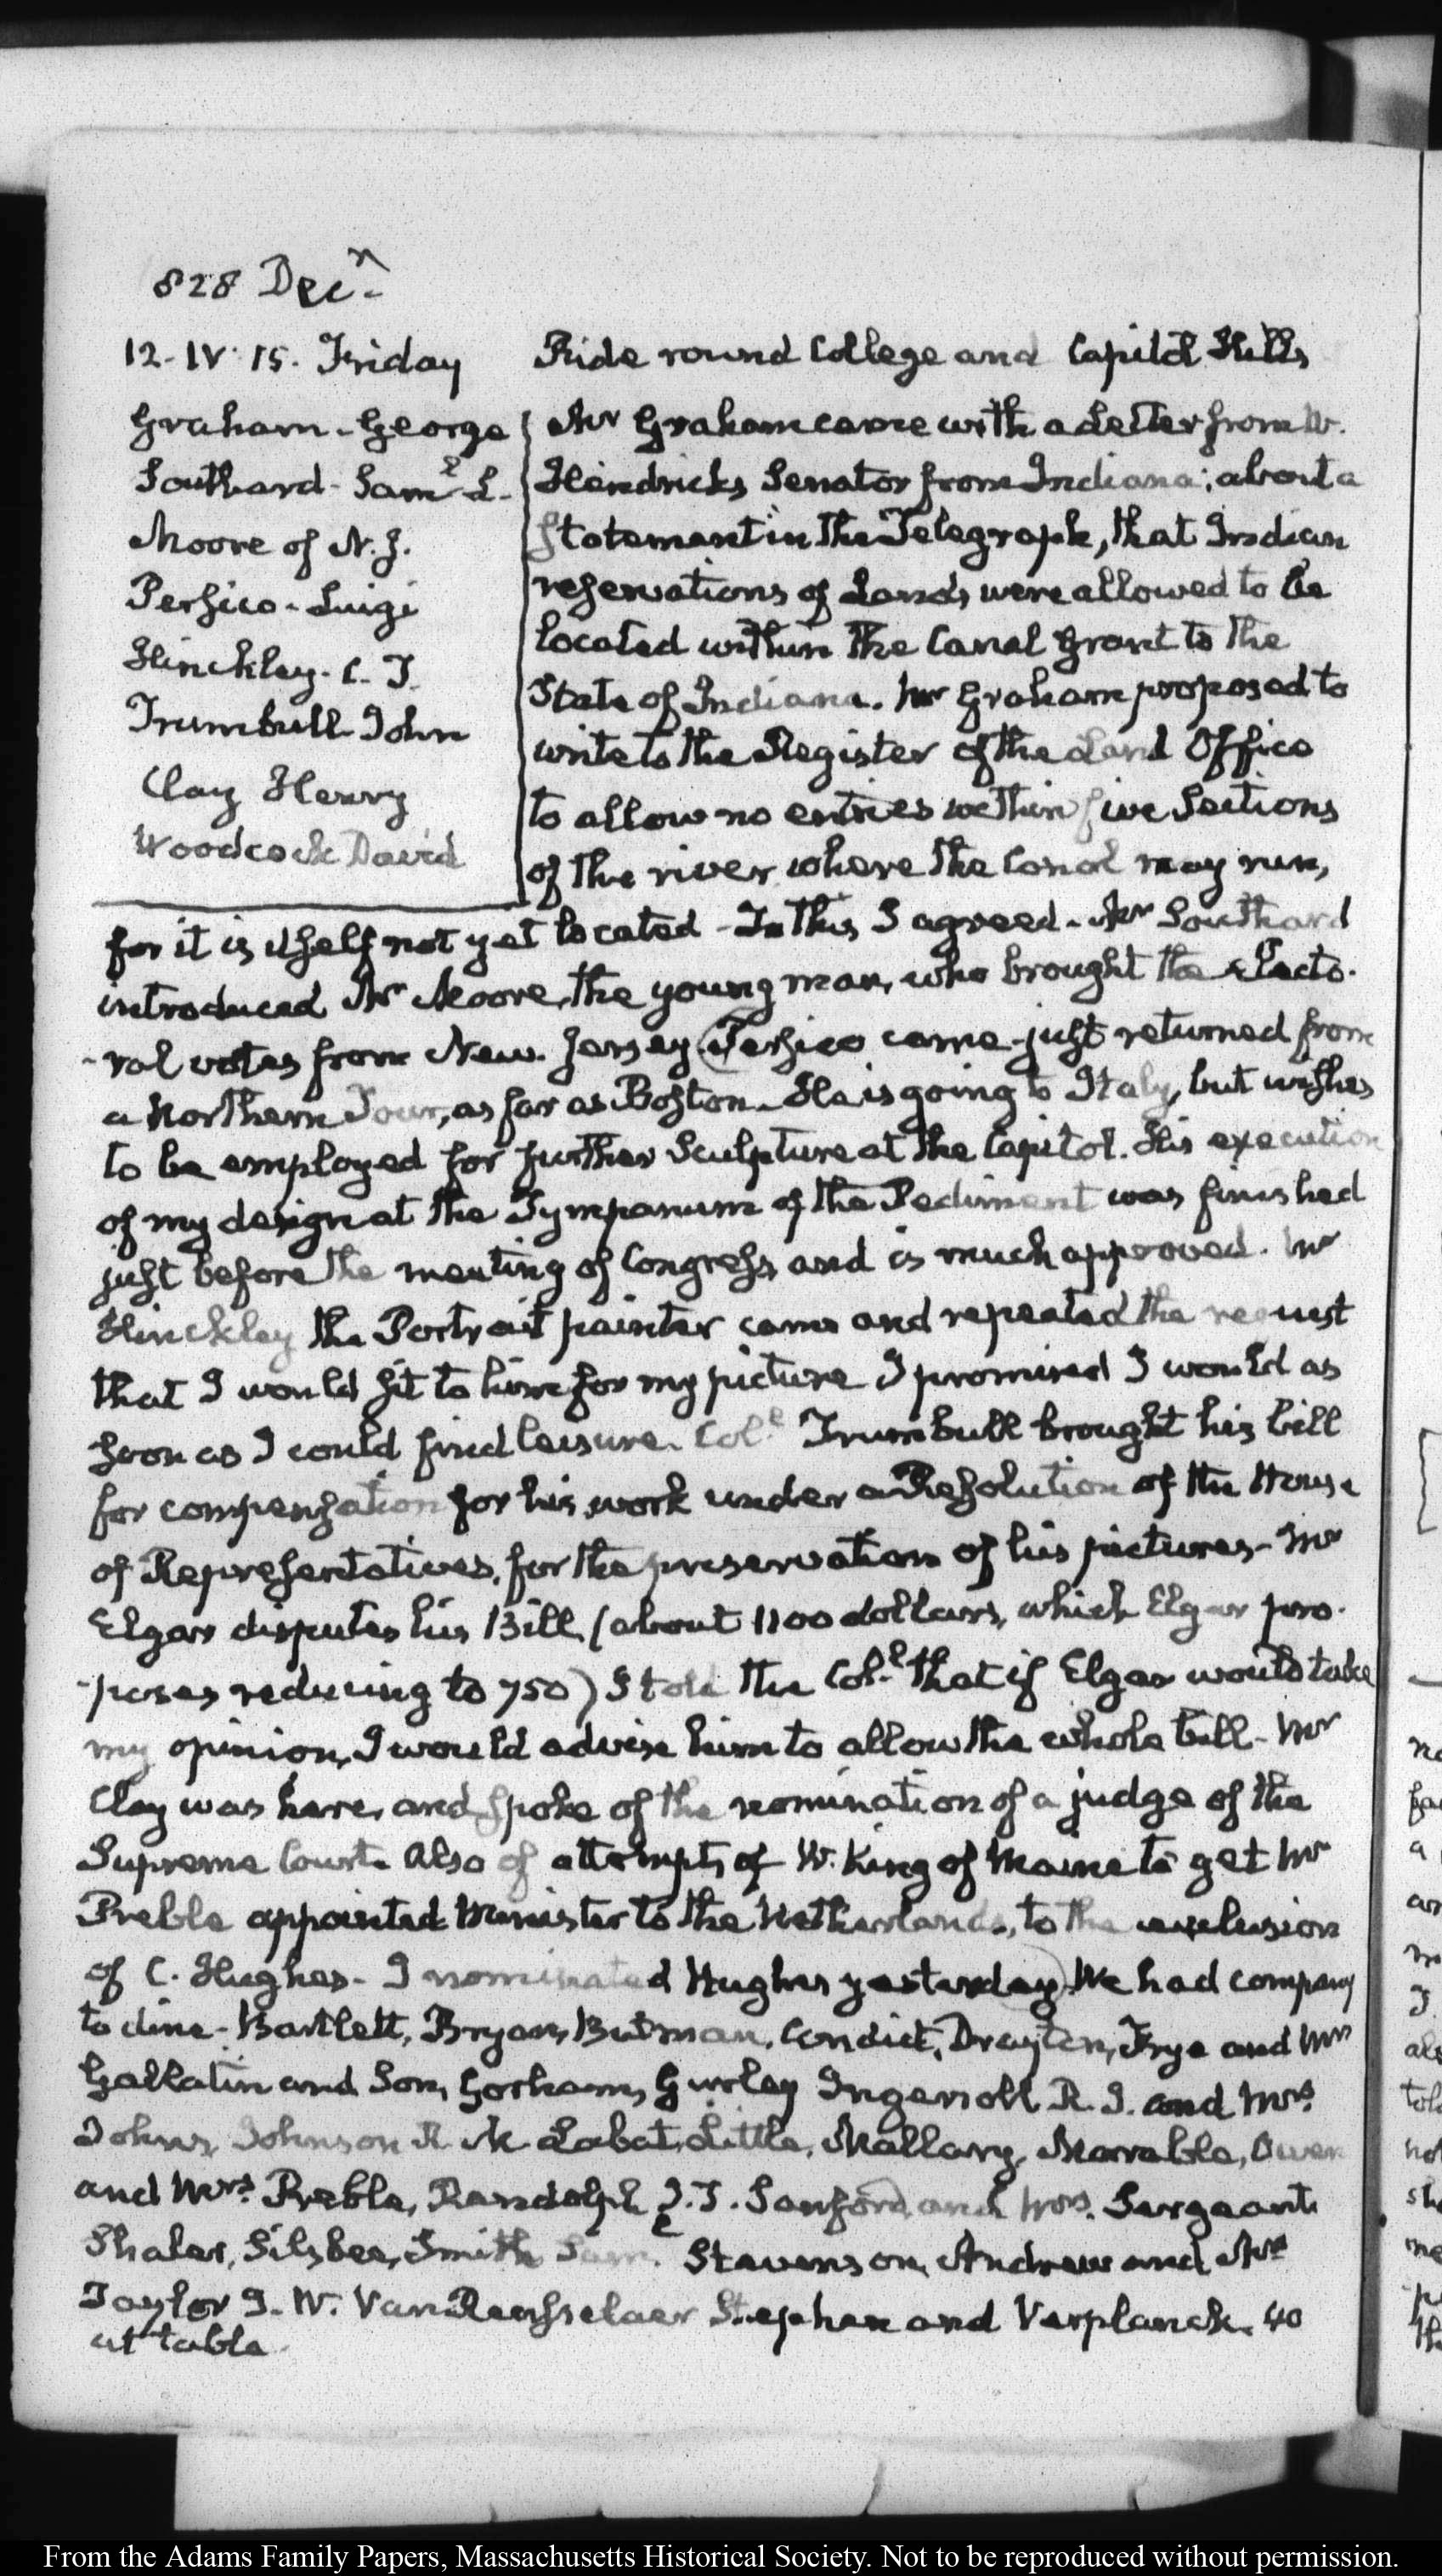 828 Decr.
12. IV. 15. Friday
Graham. George
Southard. Saml. L.
Moore of N. J.
Persico. Luigi
Hinckley. C. T.
Trumbull John
Clay Henry
Woodcock David
Ride round College and Capitol Hills
Mr Graham came with a Letter from W.
Hendricks Senator from Indiana; about a
Statement in the Telegraph, that Indian
reservations of Lands were allowed to be
located within the Canal Grant to the
State of Indiana. Mr Graham proposed to
write to the Register of the Land Office
to allow no entries within five Sections
of the river where the Canal may run,
for it is itself not yet located - To this I agreed. Mr Southard
introduced Mr Moore, the young man, who brought the Electo-
-ral votes from New-Jersey (Persico came just returned from
a Northern Tour, as far as Boston. He is going to Italy, but wishes
to be employed for further Sculpture at the Capitol. His execution
of my design at the Tympanum of the Pediment was finished
just before the meeting of Congress, and is much approved. Mr
Hinckley the Portrait painter came and repeated the request
that I would sit to him for my picture I promised I would as
soon as I could find leisure. Coll. Trumbull brought his bill
for compensation for his work under a Resolution of the House
of Representatives, for the preservation of his pictures - Mr
Elgar disputes his Bill, (about 1100 dollars, which Elgar pro-
-poses reducing to 750) I told the Coll. that if Elgar would take
my opinion, I would advise him to allow the whole bill - Mr
Clay was here, and spoke of the nomination of a judge of the
Supreme Court. Also of attempts of W. King of Maine to get Mr
Preble appointed Minister to the Netherlands, to the exclusion
of C. Hughes - I nominated Hughes yesterday) We had company
to dine - Bartlett, Bryan, Butman, Condict, Drayton, Frye and Mrs
Gallatin and Son, Gorham, Gurley Ingersoll R. I. and Mrs.
Johns, Johnson R. M. Labat, Little, Mallary, Marable, Owen
and Mrs. Preble, Randolph J. T. Sanford, and Mrs. Sergeant
Shaler, Silsbee, Smith Saml. Stevenson, Andrew and Mrs
Taylor J. W. Van Rensselaer Stephen and Verplanck. 40
at table.
From the Adams Family Papers, Massachusetts Historical Society. Not to be reproduced without permission.